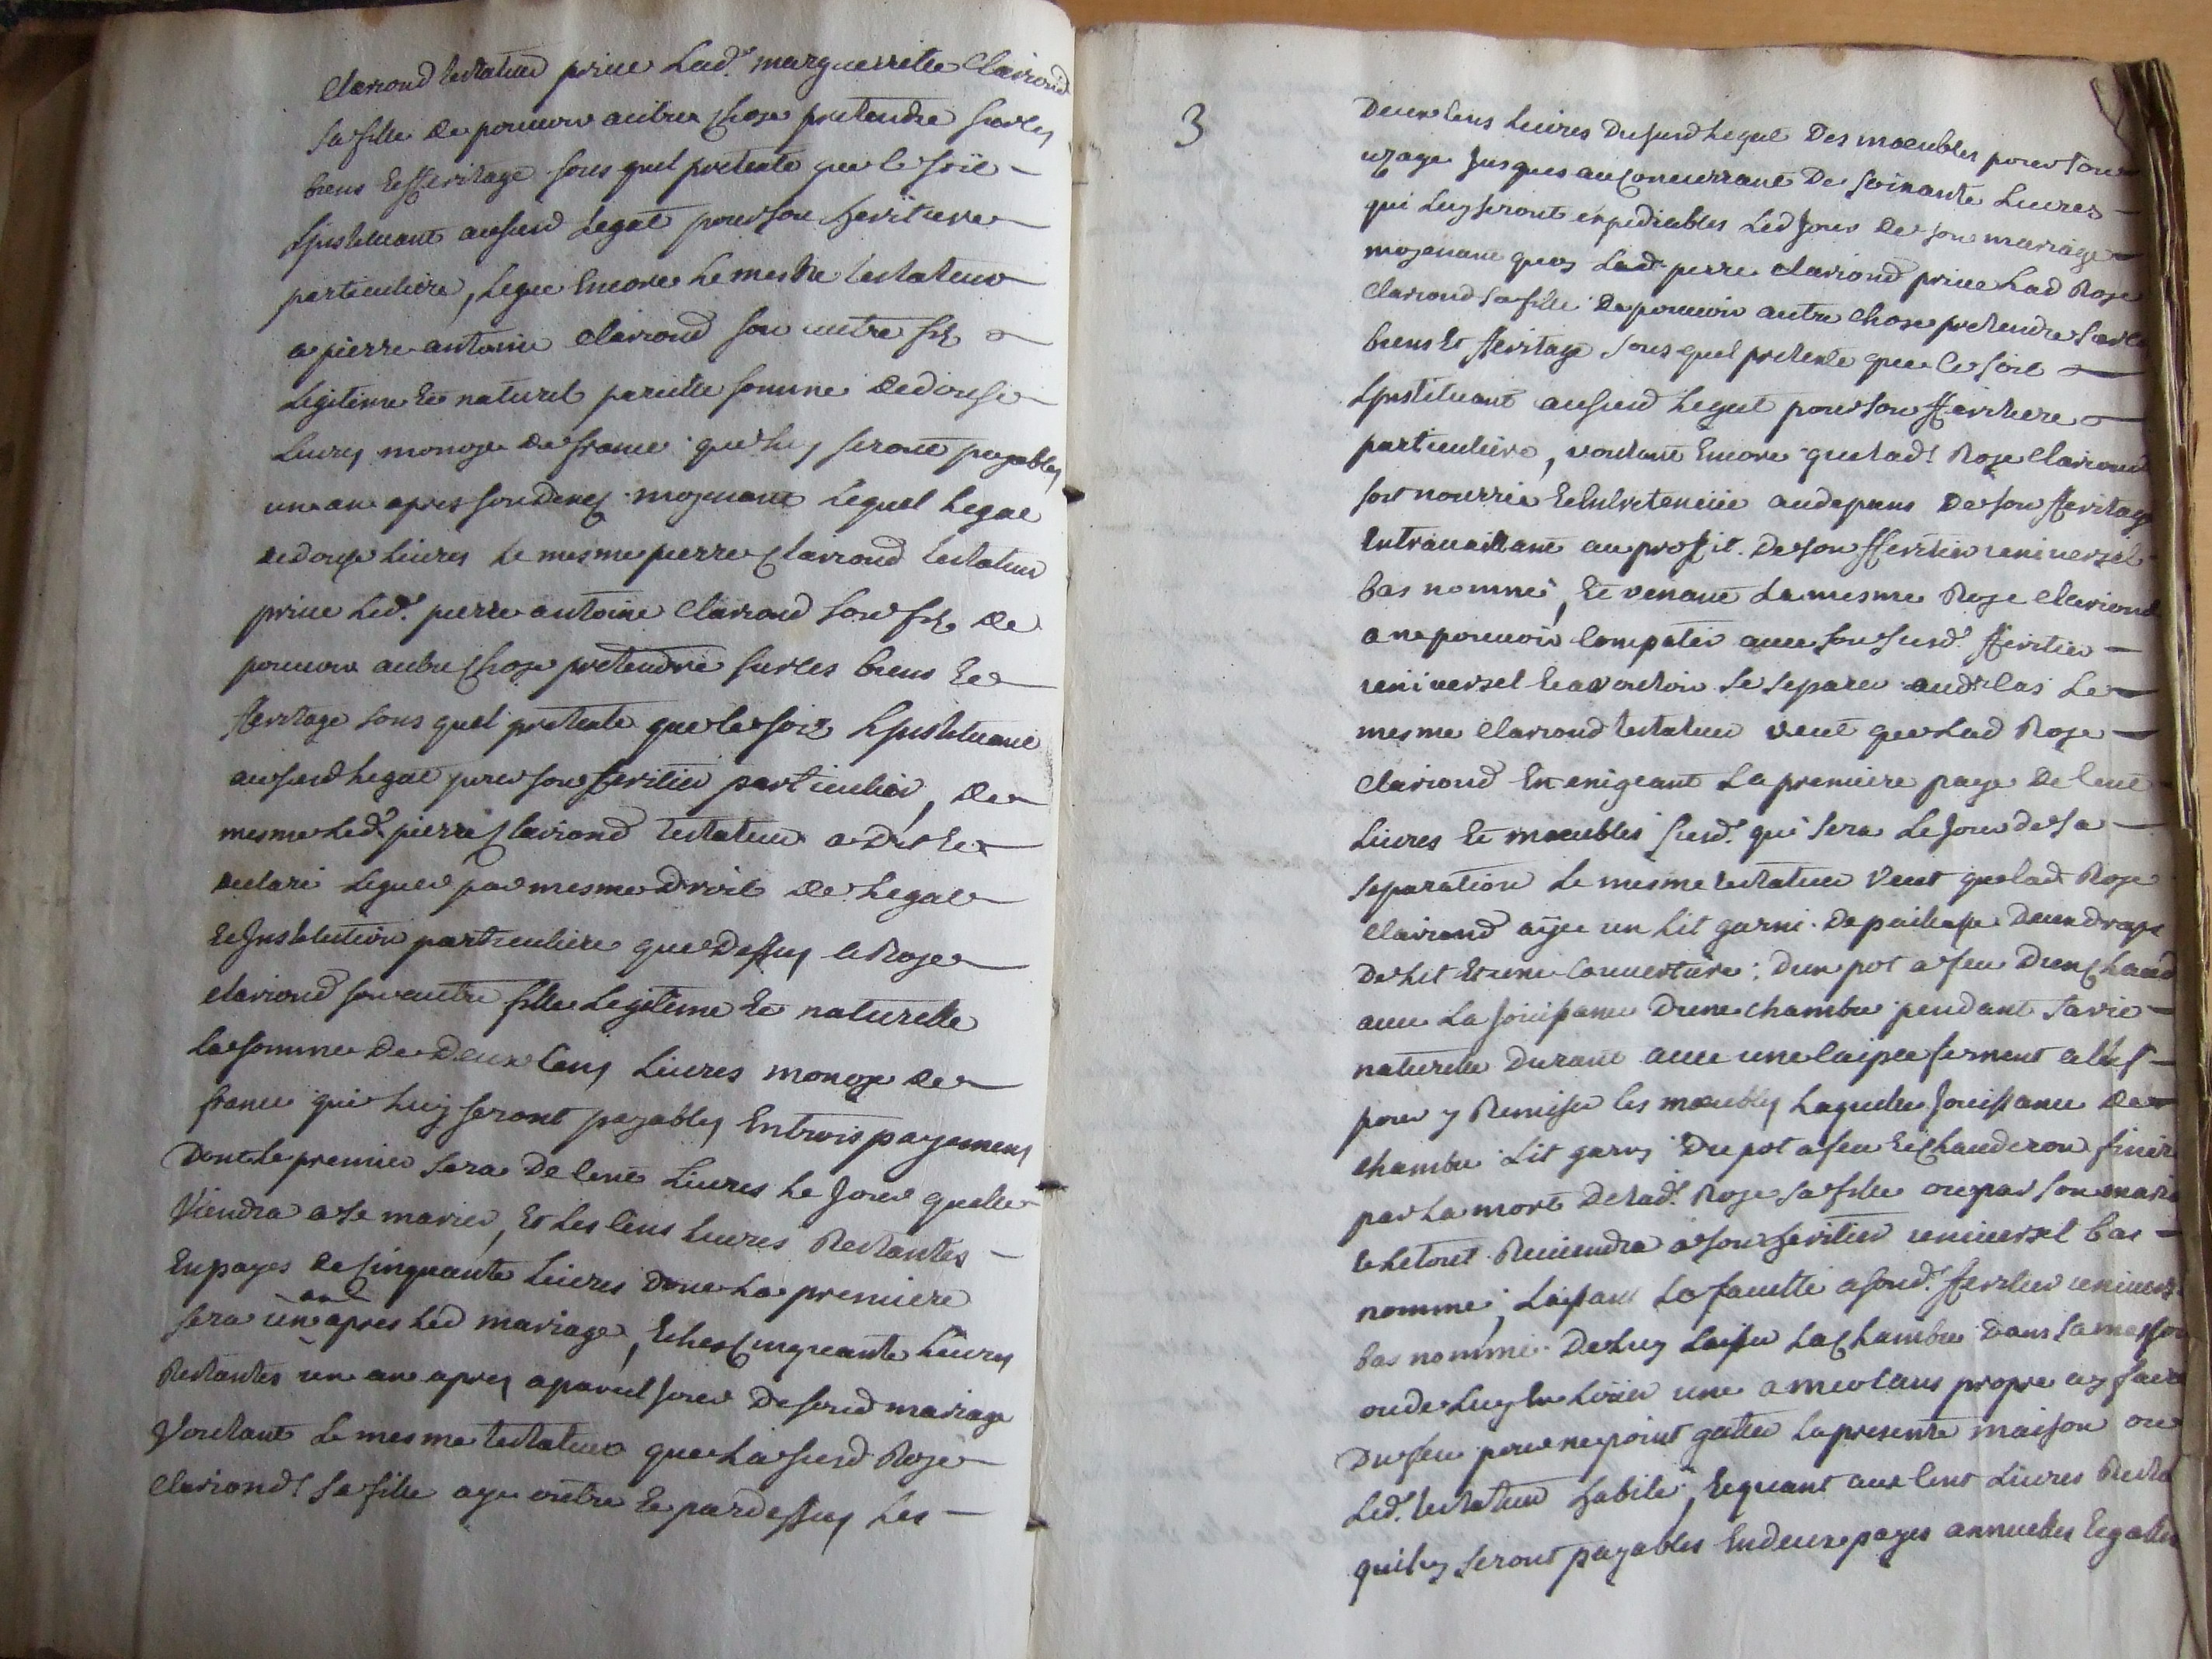 Clariond testateur prive Lad.e marguerritte Clariond
sa fille de pouvoir autre chose pretendre sur les
biens et heritage sous quel pretexte que ce soit
L'instituant ausurd Legat pour son heritiere
particuliere, Legue Encore Le mesme testateur
a pierre antoine Clariond son autre fils
Legitime et naturel pareille somme de douse
Livres monoye de france que luy seront payables
un an apres son deces moyenant Lequel Legat
de douze Livres Le mesme pierre Clariond testateur
prive Led.t pierre antoine Clariond son fils de
pouvoir autre chose pretendre sur les biens et
heritage sous quel pretexte que ce soit L'instituant
ausurd Legat pour son heritier particulier, de
mesme Led.t pierre Clariond testateur a dit et
declaré Leguer par mesme droit de Legat
et Institution particuliere que dessus a Roze
clariond son autre fille Legitime et naturelle
La somme de deux Cens Livres monoye de
france que Luy seront payables En trois payemens
Dont Le premier sera de Cent Livres Le Jour quelle
Viendra a se marier, Et Les Cens Livres Restantes
En payes de Cinquante Livres dont La premiere
sera un an apres Led mariage, Et Les Cinquante Livres
Restantes un an apres a pareil Jour de surd mariage
Voulant Le mesme testateur que La surd Roze
Clariond sa fille aye outre et par dessus Les
3
Deux Cens Livres Du surd Legat Des moeubles pour son
uzage Jusques au Concurrant De soixante Livres
qui Luy seront expediables Led Jour de son mariage
moyenant quoy Led.t pierre Clariond prive Lad Roze
Clariond sa fille De pouvoir autre chose pretendre sur les
biens Et heritage sous quel pretexte que ce soit
L'instituant ausurd Legat pour son heritiere
particuliere, voulant Encore que Lad.e Roze Clariond
soit nourrie et Entretenüe au depans De son heritage
En travaillant au proffit De son heritier universel
bas nommé, Et venant La mesme Roze Clariond
a ne pouvoir Compatir avec son surd.t heritier
universel Et a vouloir se separer aud.t Cas Le
mesme Clariond testateur veut que Lad Roze
Clariond En exigeant La premiere paye De Cent
Livres Et moeubles surd.t qui sera Le Jour de sa
separation Le mesme testateur Veut que Lad Roze
Clariond aye un Lit garni De paillasse Deux draps
De Lit Et une Couverture, Dun pot a feu Dun Chaud
avec La Jouissance Dune chambre pendant sa vie
naturelle Durant avec une Caisse ferment a Clef
pour y Remiser les moeubles Laquelle Jouissance de
chambre Lit garny Du pot a feu Et Chauderon finira
par La mort De Lad.e Roze sa fille ou par son mariage
et Le tout Reviendra a son heritier universel bas
nommé, Laissant La faculté a sond.t heritier universel
bas nommé De Luy Laisser La Chambre Dans sa maison
ou de Luy En Loüer une propre a y faire
Du feu pour ne point gatter La presente maison ou
Led.t testateur habite, Et quant aux Cent Livres Restantes
qui Luy seront payables En deux payes annuelles Egalles